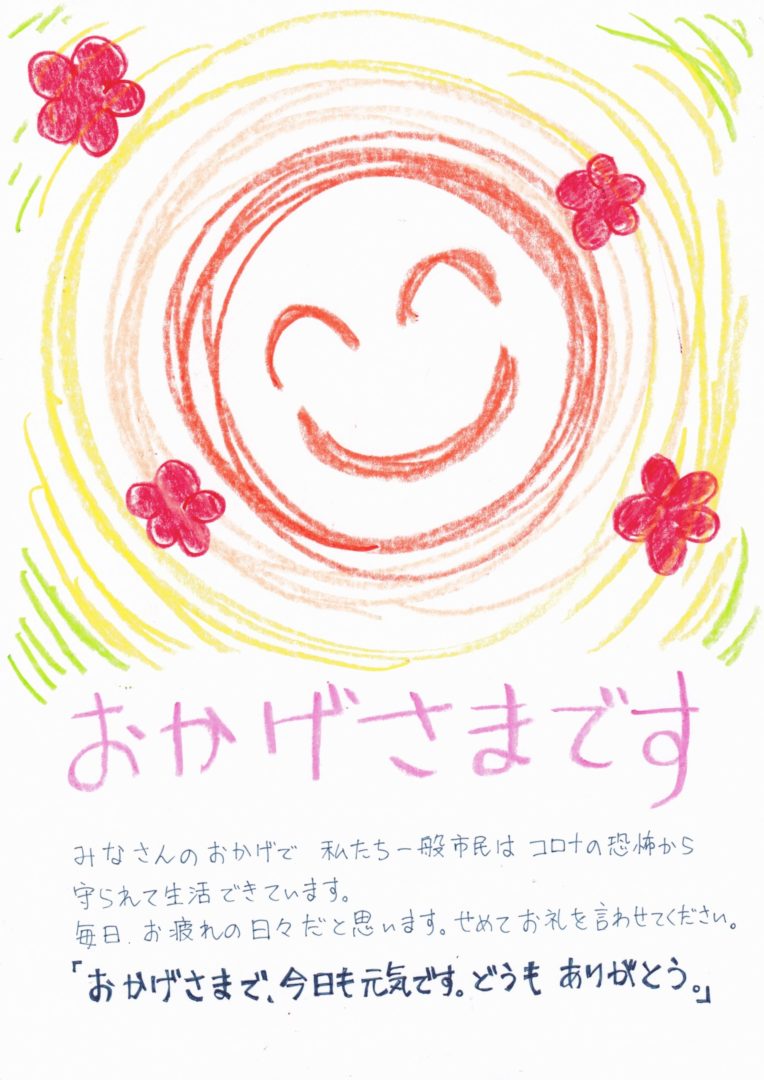 おかげさまです
みなさんのおかげで 私たち一般市民は コロナの恐怖から
守られて生活できています。
毎日、お疲れの日々だと思います。せめてお礼を言わせてください。
「おかげさまで、今日も元気です。どうも ありがとう。」